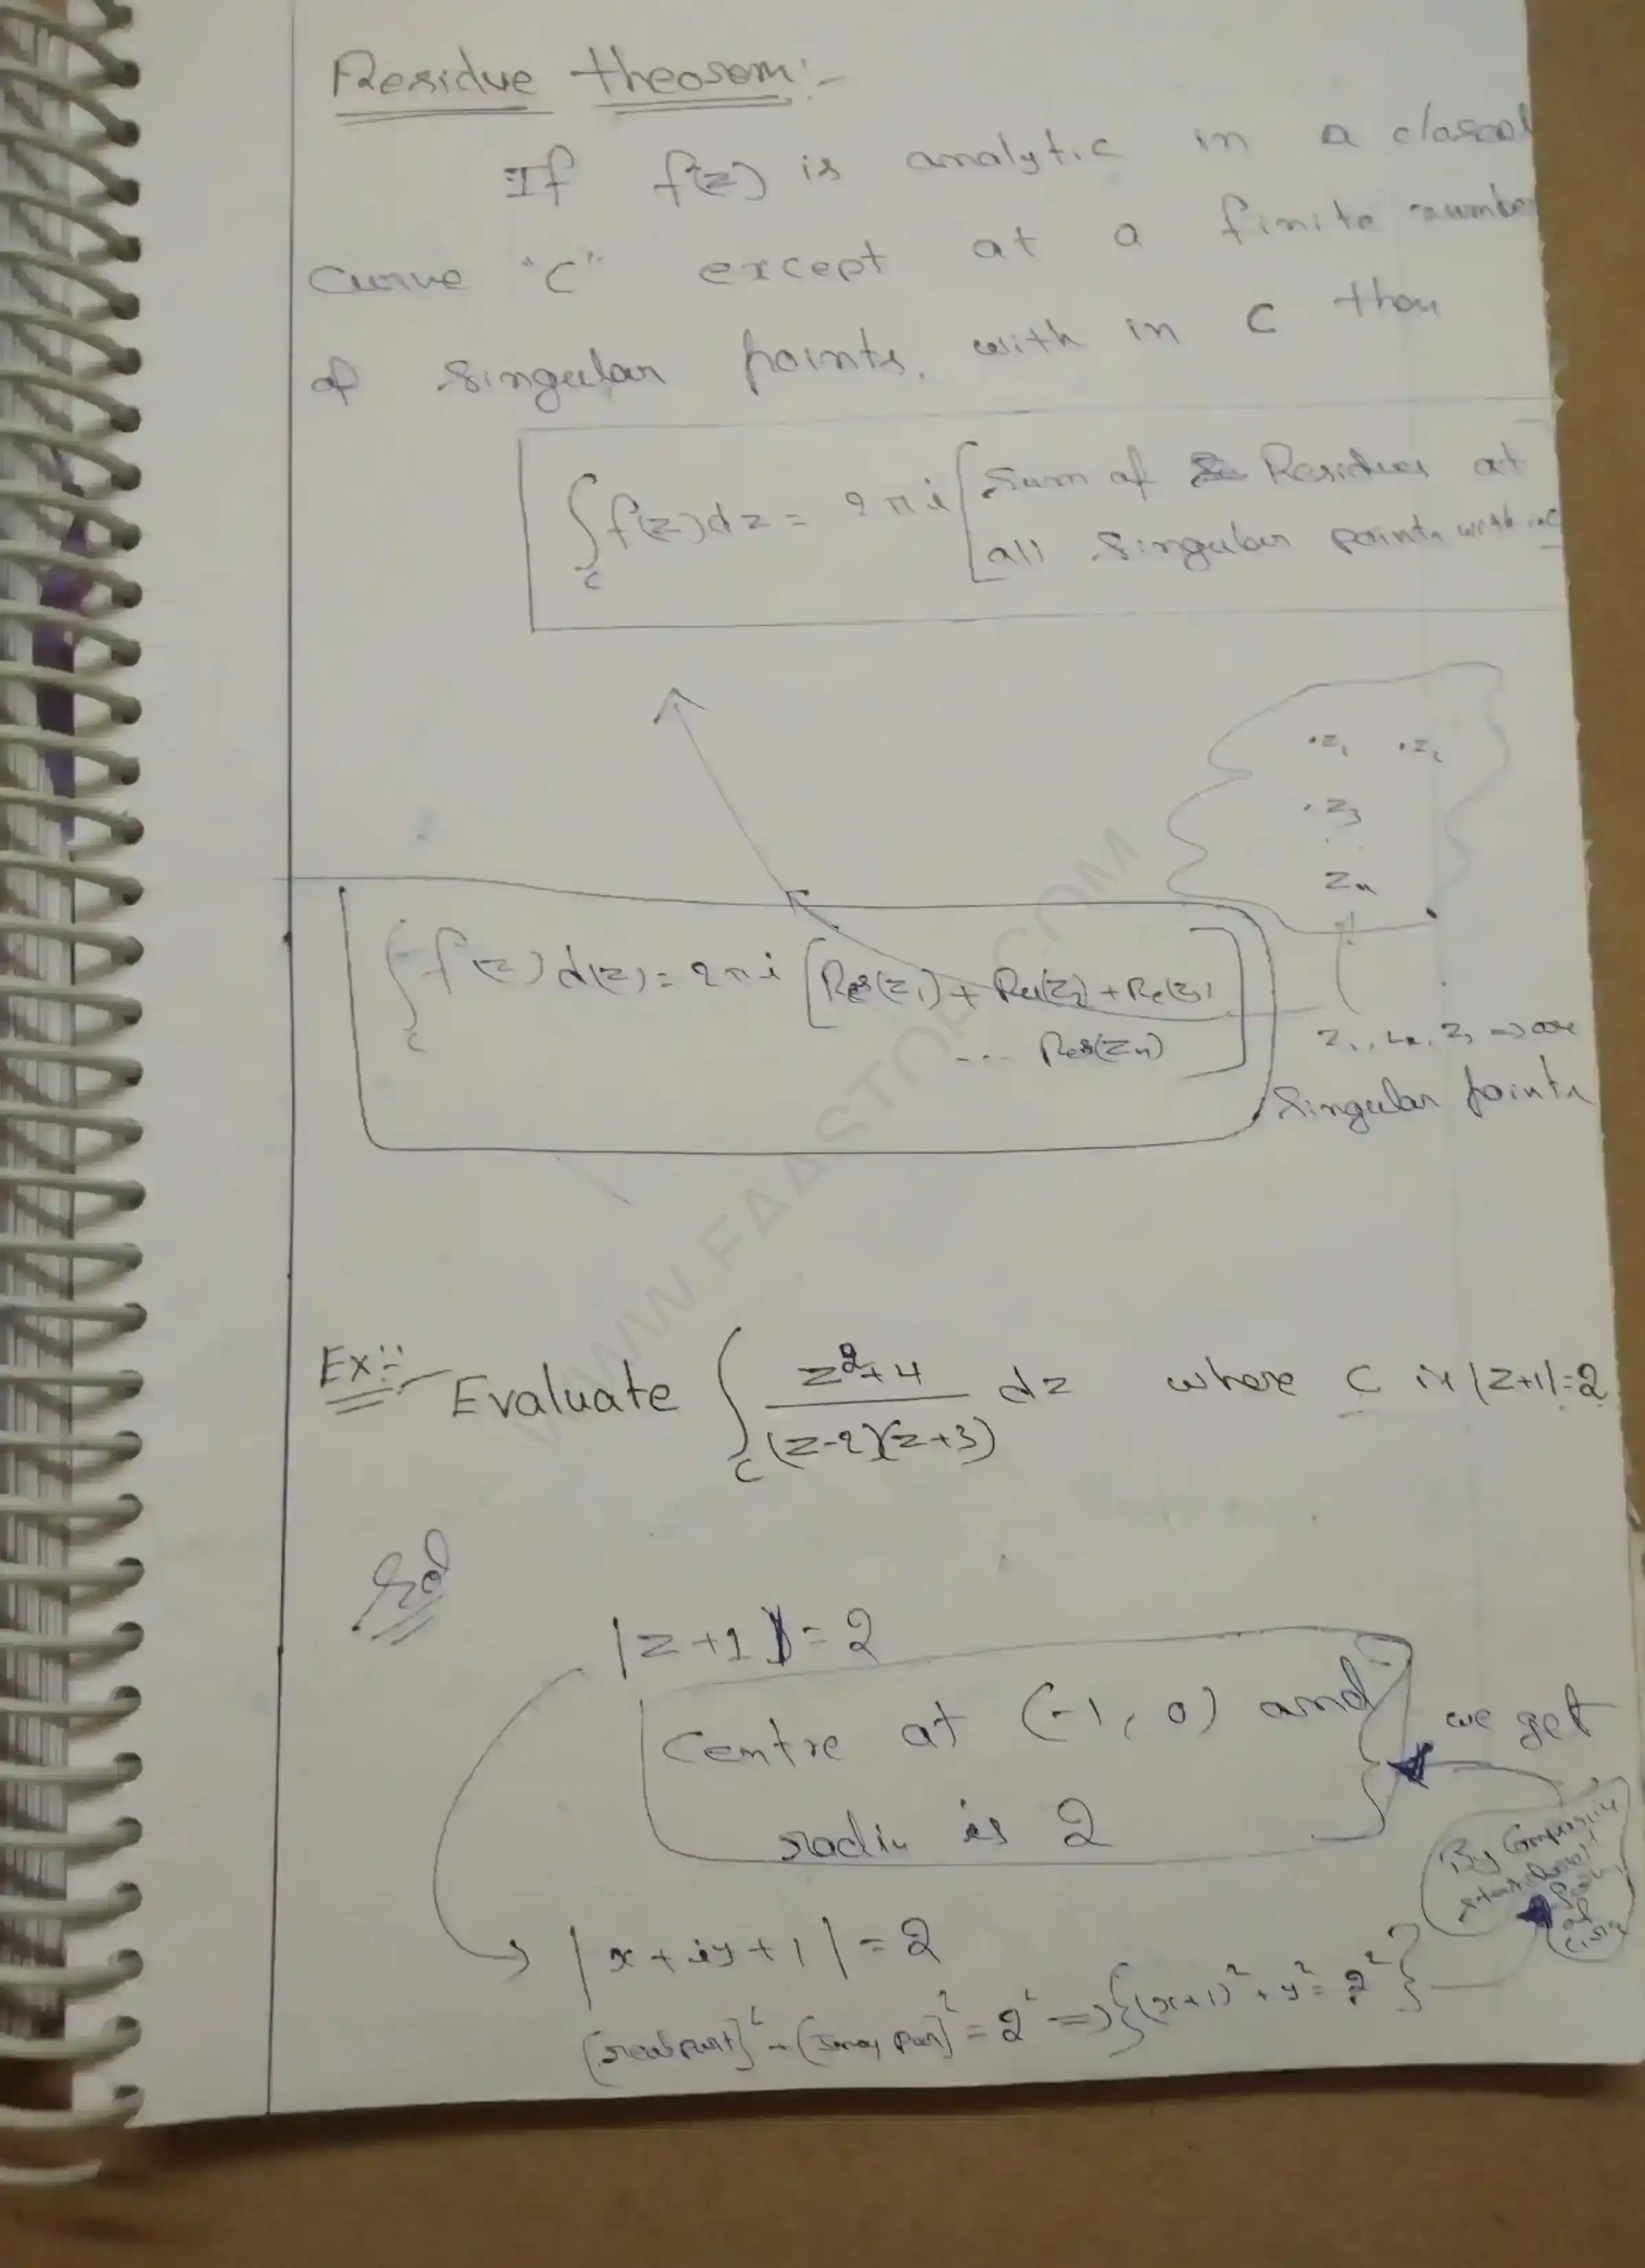 Residue theorem:-
If f(z) is analytic in a closed
curve "C" except at a finite number
of singular points. with in C then
∫_C f(z)dz = 2πi [Sum of Residues at
all singular points with in C
.z₁ .z₂
.z₃
zₙ
∫_C f(z)d(z) = 2πi [Res(z₁) + Re(z₂) + Re(z₃)
... Res(zₙ)]
z₁, z₂, z₃ => are
singular points
WWW.FAASTOP.COM
Ex:- Evaluate ∫_C (z²+4)/((z-2)(z+3)) dz where C is |z+1|=2
Sol
|z+1|=2
Centre at (-1, 0) and
radiu is 2
we get
By Comparing
|x+iy+1|=2
[real part]² + [Imag part]² = 2² => {(x+1)² + y² = 2²}